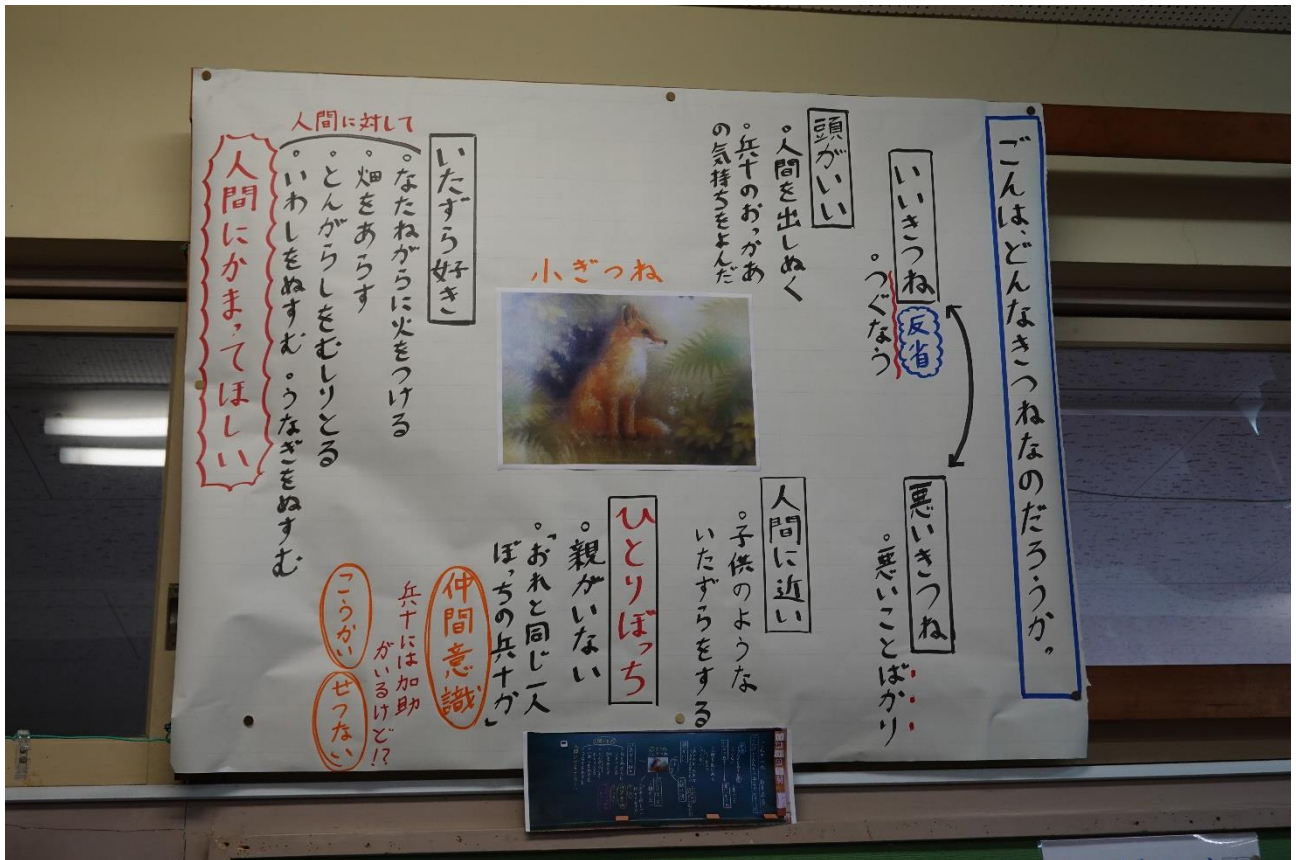 ごんは、どんなきつねなのだろうか。
いいきつね
反省
。つぐなう
悪いきつね
。悪いことばかり
頭がいい
。人間を出しぬく
。兵十のおっかあ
の気持ちをよんだ
人間に近い
。子供のような
いたずらをする
小ぎつね
ひとりぼっち
。親がいない
。「おれと同じ一人
ぼっちの兵十か」
仲間意識
兵十には加助
がいるけど!?
こうかい
せつない
いたずら好き
人間に対して
。なたねがらに火をつける
。畑をあらす
。とんがらしをむしりとる
。いわしをぬすむ。うなぎをぬすむ
人間にかまってほしい